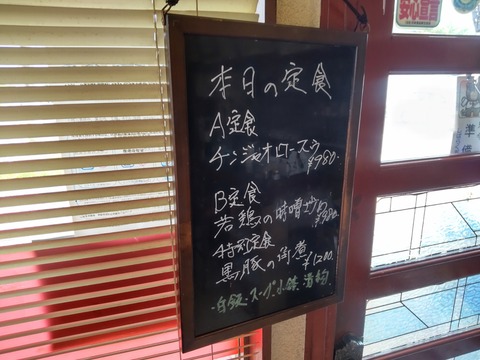 本日の定食
A定食
チンジャオロースウ
¥980-
B定食
若鶏の味噌
¥980-
特別定食
黒豚の角煮 ¥1200-
白飯・スープ・小鉢・漬物
準備